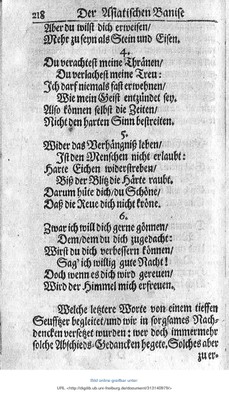 218 Der Asiatischen Banise
Aber du wilst dich erweisen/
Mehr zu seyn als Stein und Eisen.
4.
Du verachtest meine Thränen/
Du verlachest meine Treu:
Ich darf niemals fast erwehnen/
Wie mein Geist entzündet sey.
Also können selbst die Zeiten/
Nicht den harten Sinn bestreiten.
5.
Wider das Verhängniß leben/
Ist den Menschen nicht erlaubt:
Harte Eichen widerstreben/
Biß der Blitz die Härte raubt.
Darum hüte dich/du Schöne/
Daß die Reue dich nicht kröne.
6.
Zwar ich will dich gerne gönnen/
Dem/dem du dich zugedacht:
Wirst du dich verbessern können/
Sag' ich willig gute Nacht!
Doch wenn es dich wird gereuen/
Wird der Himmel mich erfreuen.
Welche letztere Worte von einem tieffen
Seufftzer begleitet/und wir in sorgsames Nach-
dencken versetzet wurden: wer doch immermehr
solche Abschieds-Gedancken hegete. Solches aber
zu er-
Bild online greifbar unter: